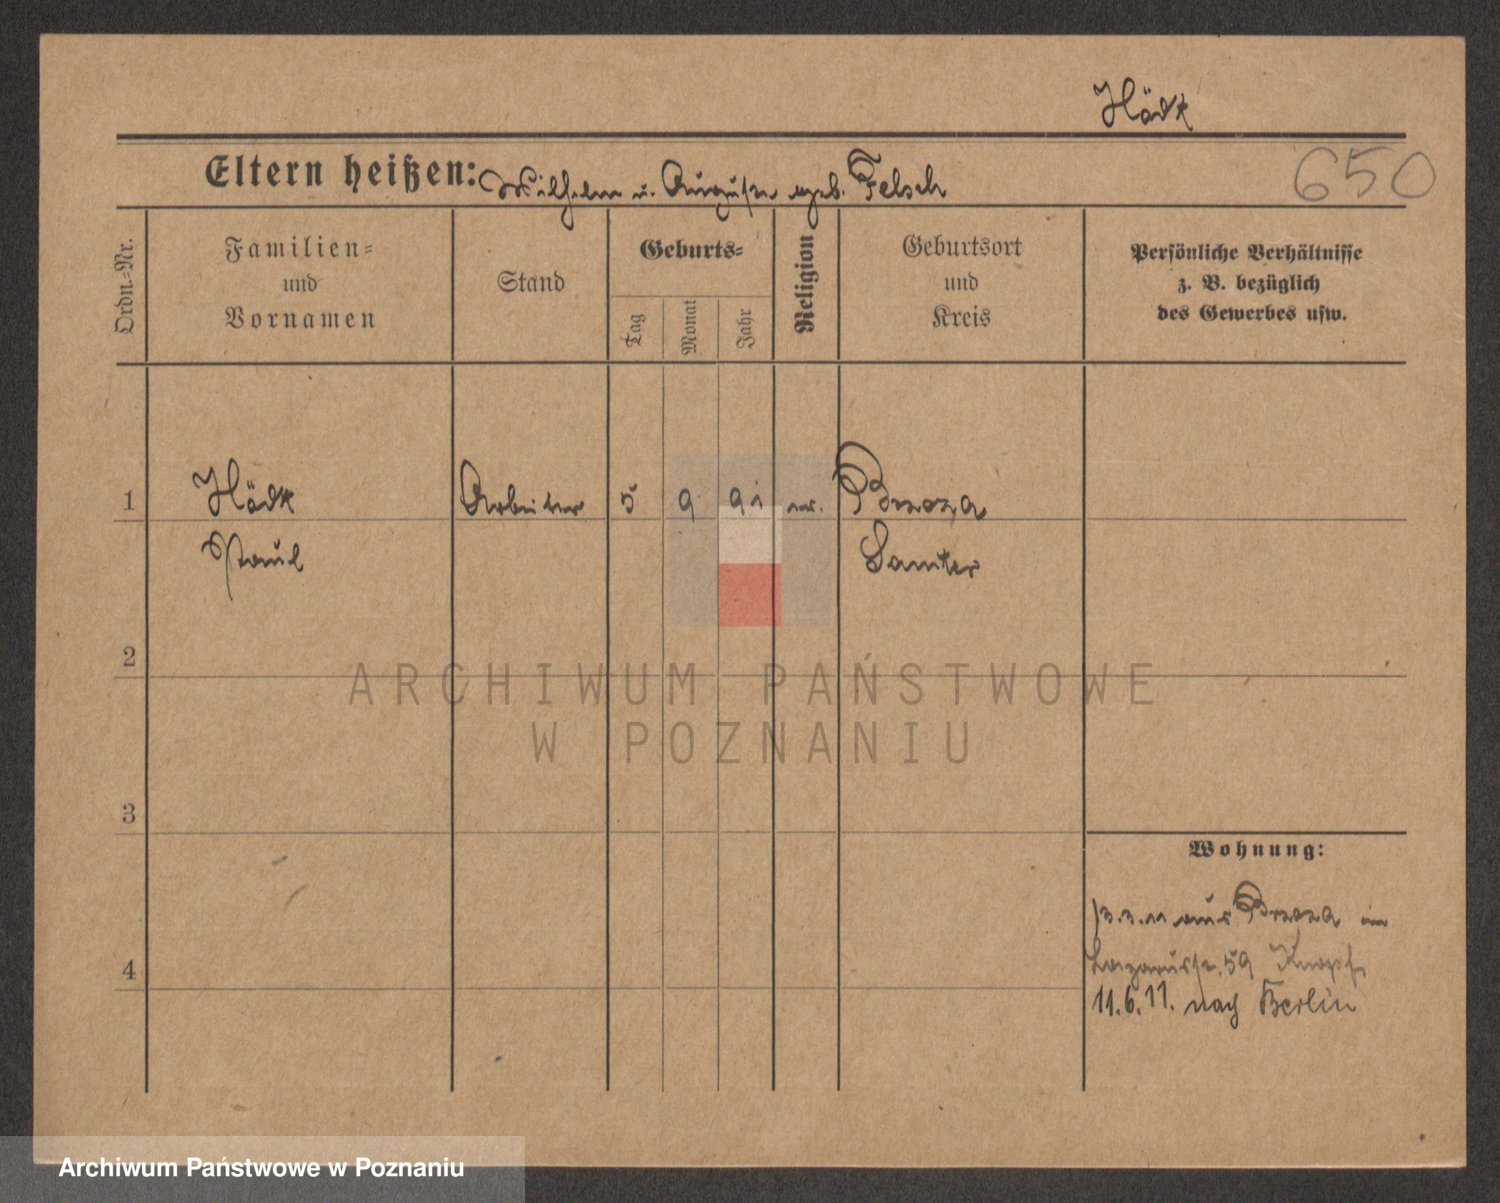 Hödt
Eltern heißen: Wilhelm u. Auguste geb. Felsch
650
Ordn.-Nr.
Familien-
und
Vornamen
Stand
Geburts-
Tag
Monat
Jahr
Religion
Geburtsort
und
Kreis
Persönliche Verhältnisse
z. B. bezüglich
des Gewerbes usw.
1 Hödt Arbeiter 5 9 91 ev. Brzoza
Paul Samter
2
ARCHIWUM PAŃSTWOWE
W POZNANIU
3
Wohnung:
aus Brzoza in
Lazarusstr. 59 Knopf
4
11.6.11. nach Berlin
Archiwum Państwowe w Poznaniu